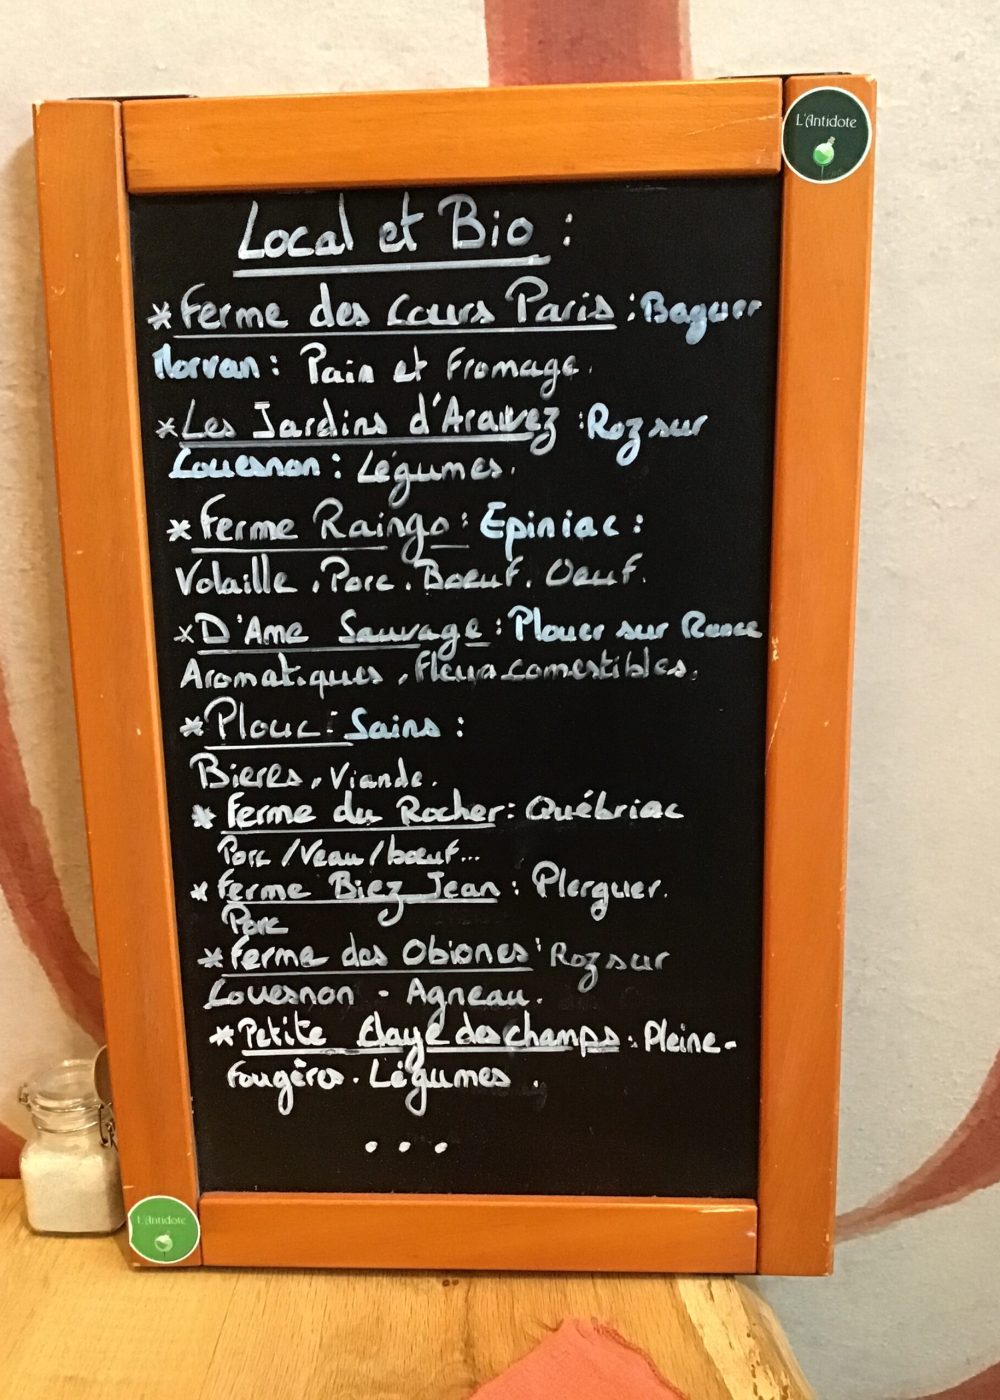 L'Antidote
Local et Bio :
* Ferme des Cours Paris : Baguer
Morvan : Pain et Fromage.
* Les Jardins d'Aravez : Roz sur
Couesnon : Légumes.
* Ferme Raingo : Epiniac :
Volaille, Porc, Boeuf, Oeuf.
* D'Ame Sauvage : Plouer sur Rance
Aromatiques, Fleurs comestibles.
* Plouc : Sains :
Bieres, Viande.
* Ferme du Rocher : Québriac
Porc / Veau / boeuf...
* Ferme Biez Jean : Plerguer.
Porc
* Ferme des Obiones : Roz sur
Couesnon - Agneau.
* Petite Elaye des champs : Pleine-
Fougères. Légumes.
...
L'Antidote